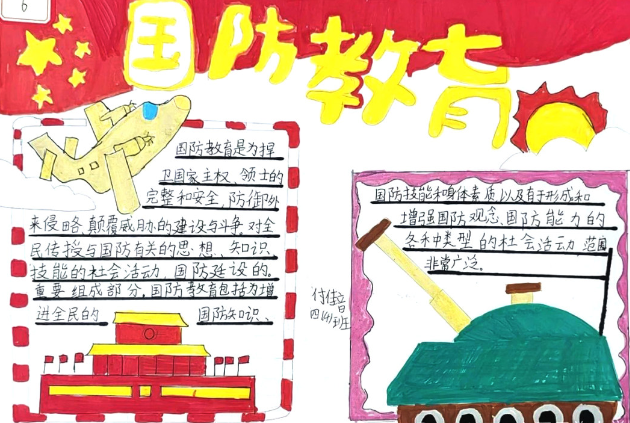 6
国防教育
国防教育是为捍
卫国家主权、领土的
完整和安全,防御外
来侵略、颠覆威胁的建设与斗争,对全
民传授与国防有关的思想、知识、
技能的社会活动,国防建设的
重要组成部分,国防教育包括为增
进全民的 国防知识、
国防技能和身体素质以及有于形成和
增强国防观念、国防能力的
各种类型的社会活动 范围
非常广泛。
四(4)班